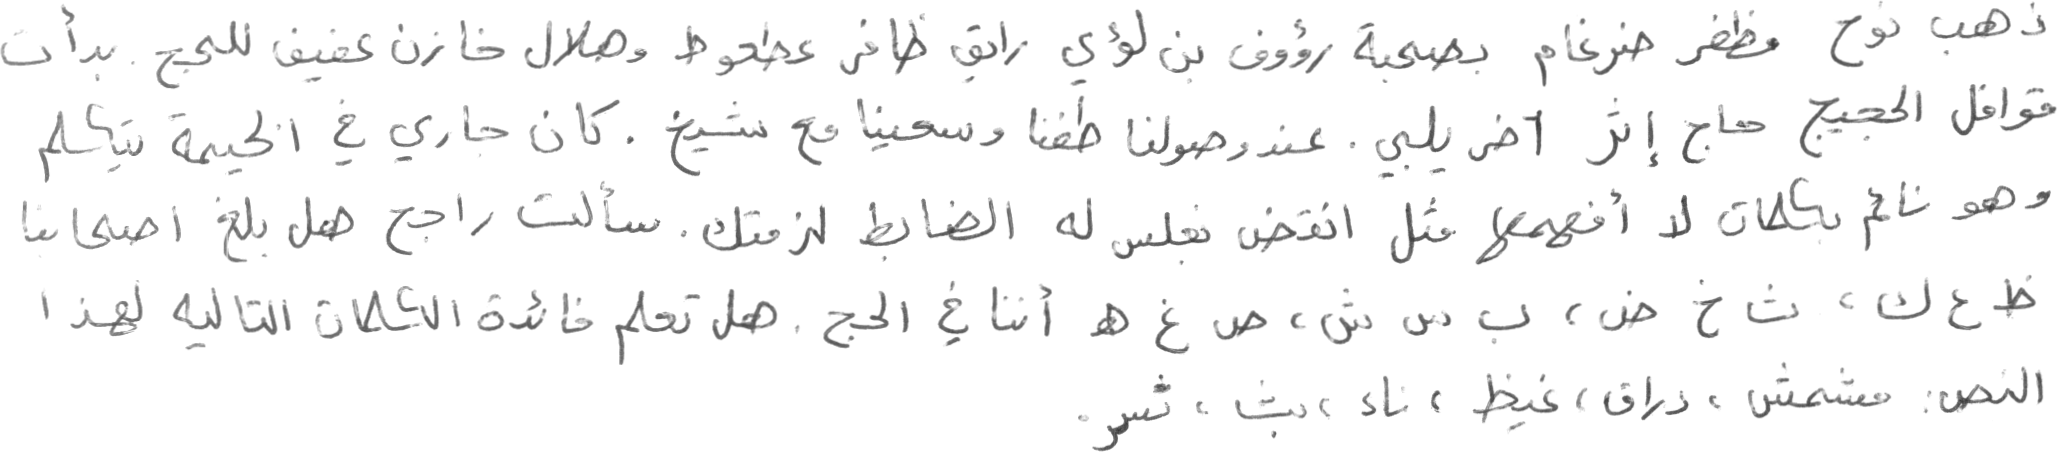 ذهب نوح مظفر ضرغام بصحبة رؤوف بن لؤي رايق ظافر عطعوط وهلال خازن عفيف للحج. بدأت
قوافل الحجيج حاج إثر آخر يلبي. عند وصولنا طفنا وسعينا مع شيخ. كان جاري في الخيمة يتكلم
وهو نائم بكلمات لا أفهمها مثل انقض نغلس له الضابط لزمتك. سألت راجح هل بلغ اصحابنا
ظ ع ك، ث خ ض، ب س ش، ص غ ه أننا في الحج. هل تعلم فائدة الكلمات التاليه لهذا
النص: مشمش، دراق، غيظ، ناء، بث، ثس.